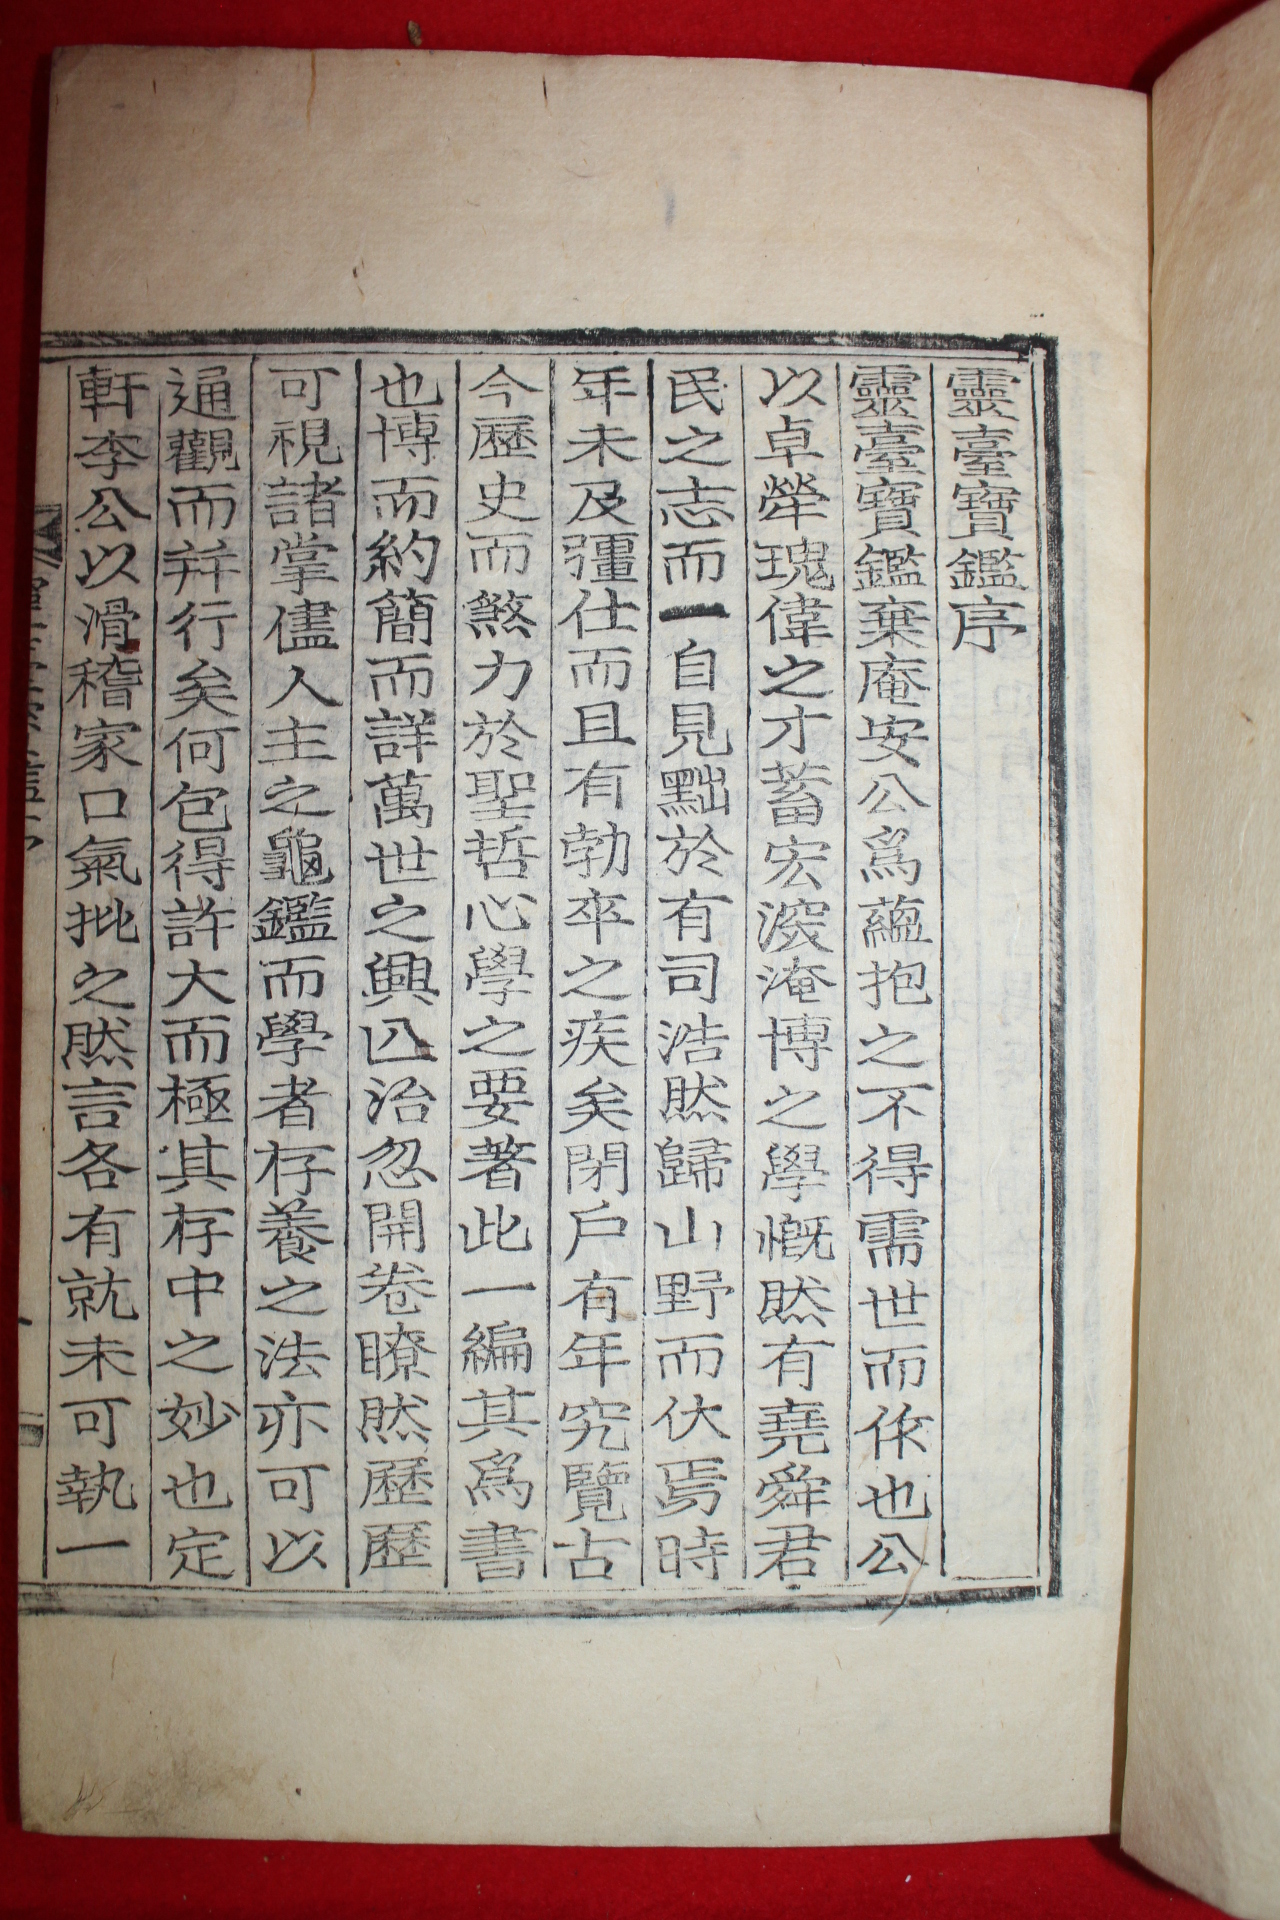 靈臺寶鑑序
靈臺寶鑑棄庵安公爲蘊抱之不得需世而作也公
以卓犖瑰偉之才蓄宏深淹博之學慨然有堯舜君
民之志而一自見黜於有司浩然歸山野而伏焉時
年未及彊仕而且有勃卒之疾矣閉戶有年究覽古
今歷史而煞力於聖哲心學之要著此一編其爲書
也博而約簡而詳萬世之興亾治忽開卷瞭然歷歷
可視諸掌儘人主之龜鑑而學者存養之法亦可以
通觀而并行矣何包得許大而極其存中之妙也定
軒李公以滑稽家口氣批之然言各有就未可執一